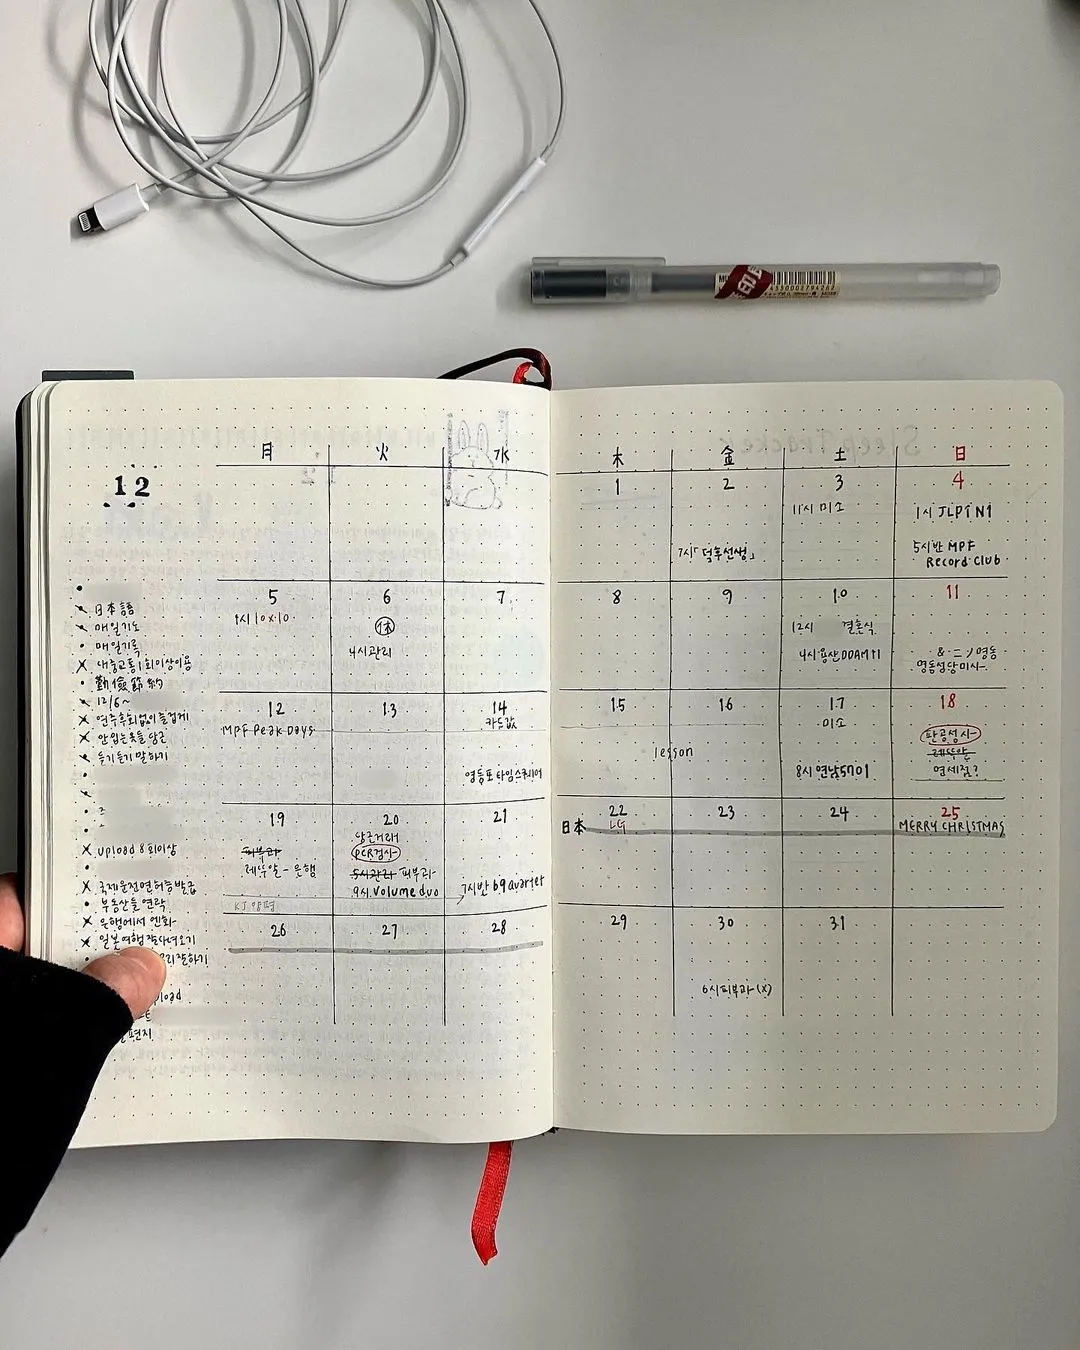 12
月 火 水 木 金 土 日
1 2 3 4
11시 미소
1시 JLPT N1
7시「덕후선생」
5시반 MPF
Record Club
5 6 7 8 9 10 11
1시 10x10
休
12시 결혼식
4시 관리
4시 용산 DDAMTI
영등성당미사
12 13 14 15 16 17 18
MPF Peak Days
카드값
미소
판공성사
lesson
연세점?
영등포 타임스퀘어
8시 연남5701
19 20 21 22 23 24 25
당근거래
日本
MERRY CHRISTMAS
피부과
PCR검사
은행
5시관리 피부과
9시 Volume duo
7시반 b9quarter
26 27 28 29 30 31
6시 피부과 (X)
日本語
매일기도
매일기록
대중교통 1회이상이용
勤儉節約
12/6~
연주 후회없이 즐겁게
안입는옷들 당근
듣기 듣기 말하기
upload 8회이상
국제운전면허증발급
부동산들 연락
은행에서 엔화
일본여행 잘 다녀오기
편지
Sleep Tracker